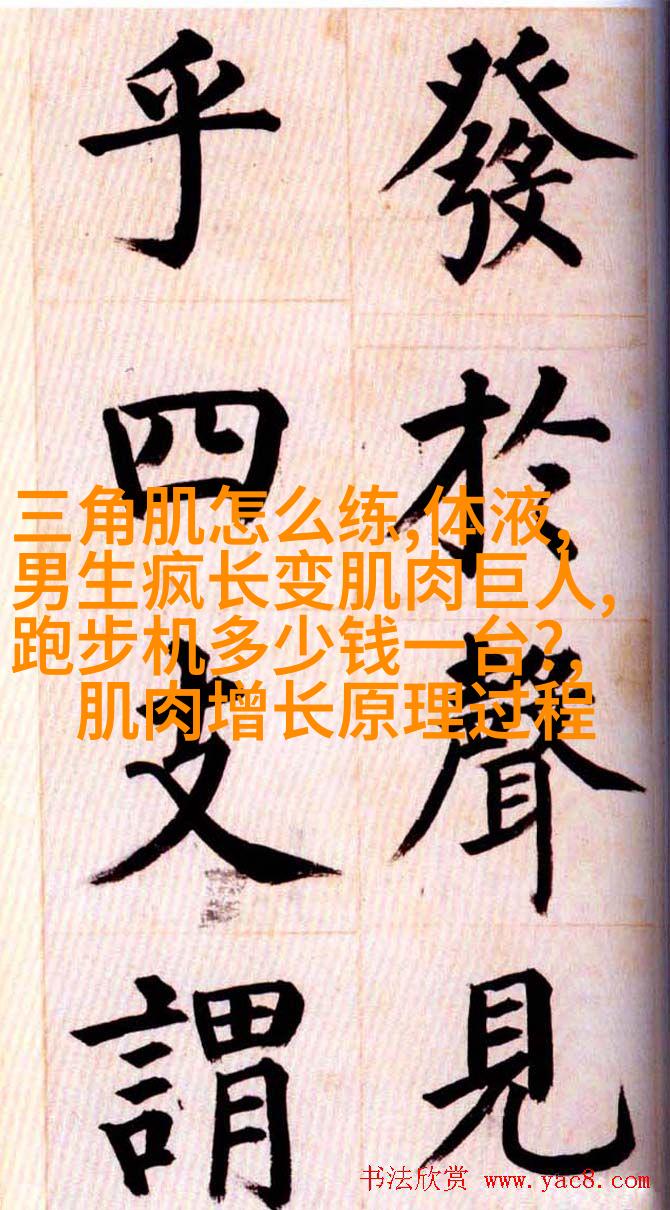 發於聲見
乎四支謂
三角肌怎么练,体液,
男生疯长变肌肉巨人,
跑步机多少钱一台?,
肌肉增长原理过程
书法欣赏 www.yac8.com